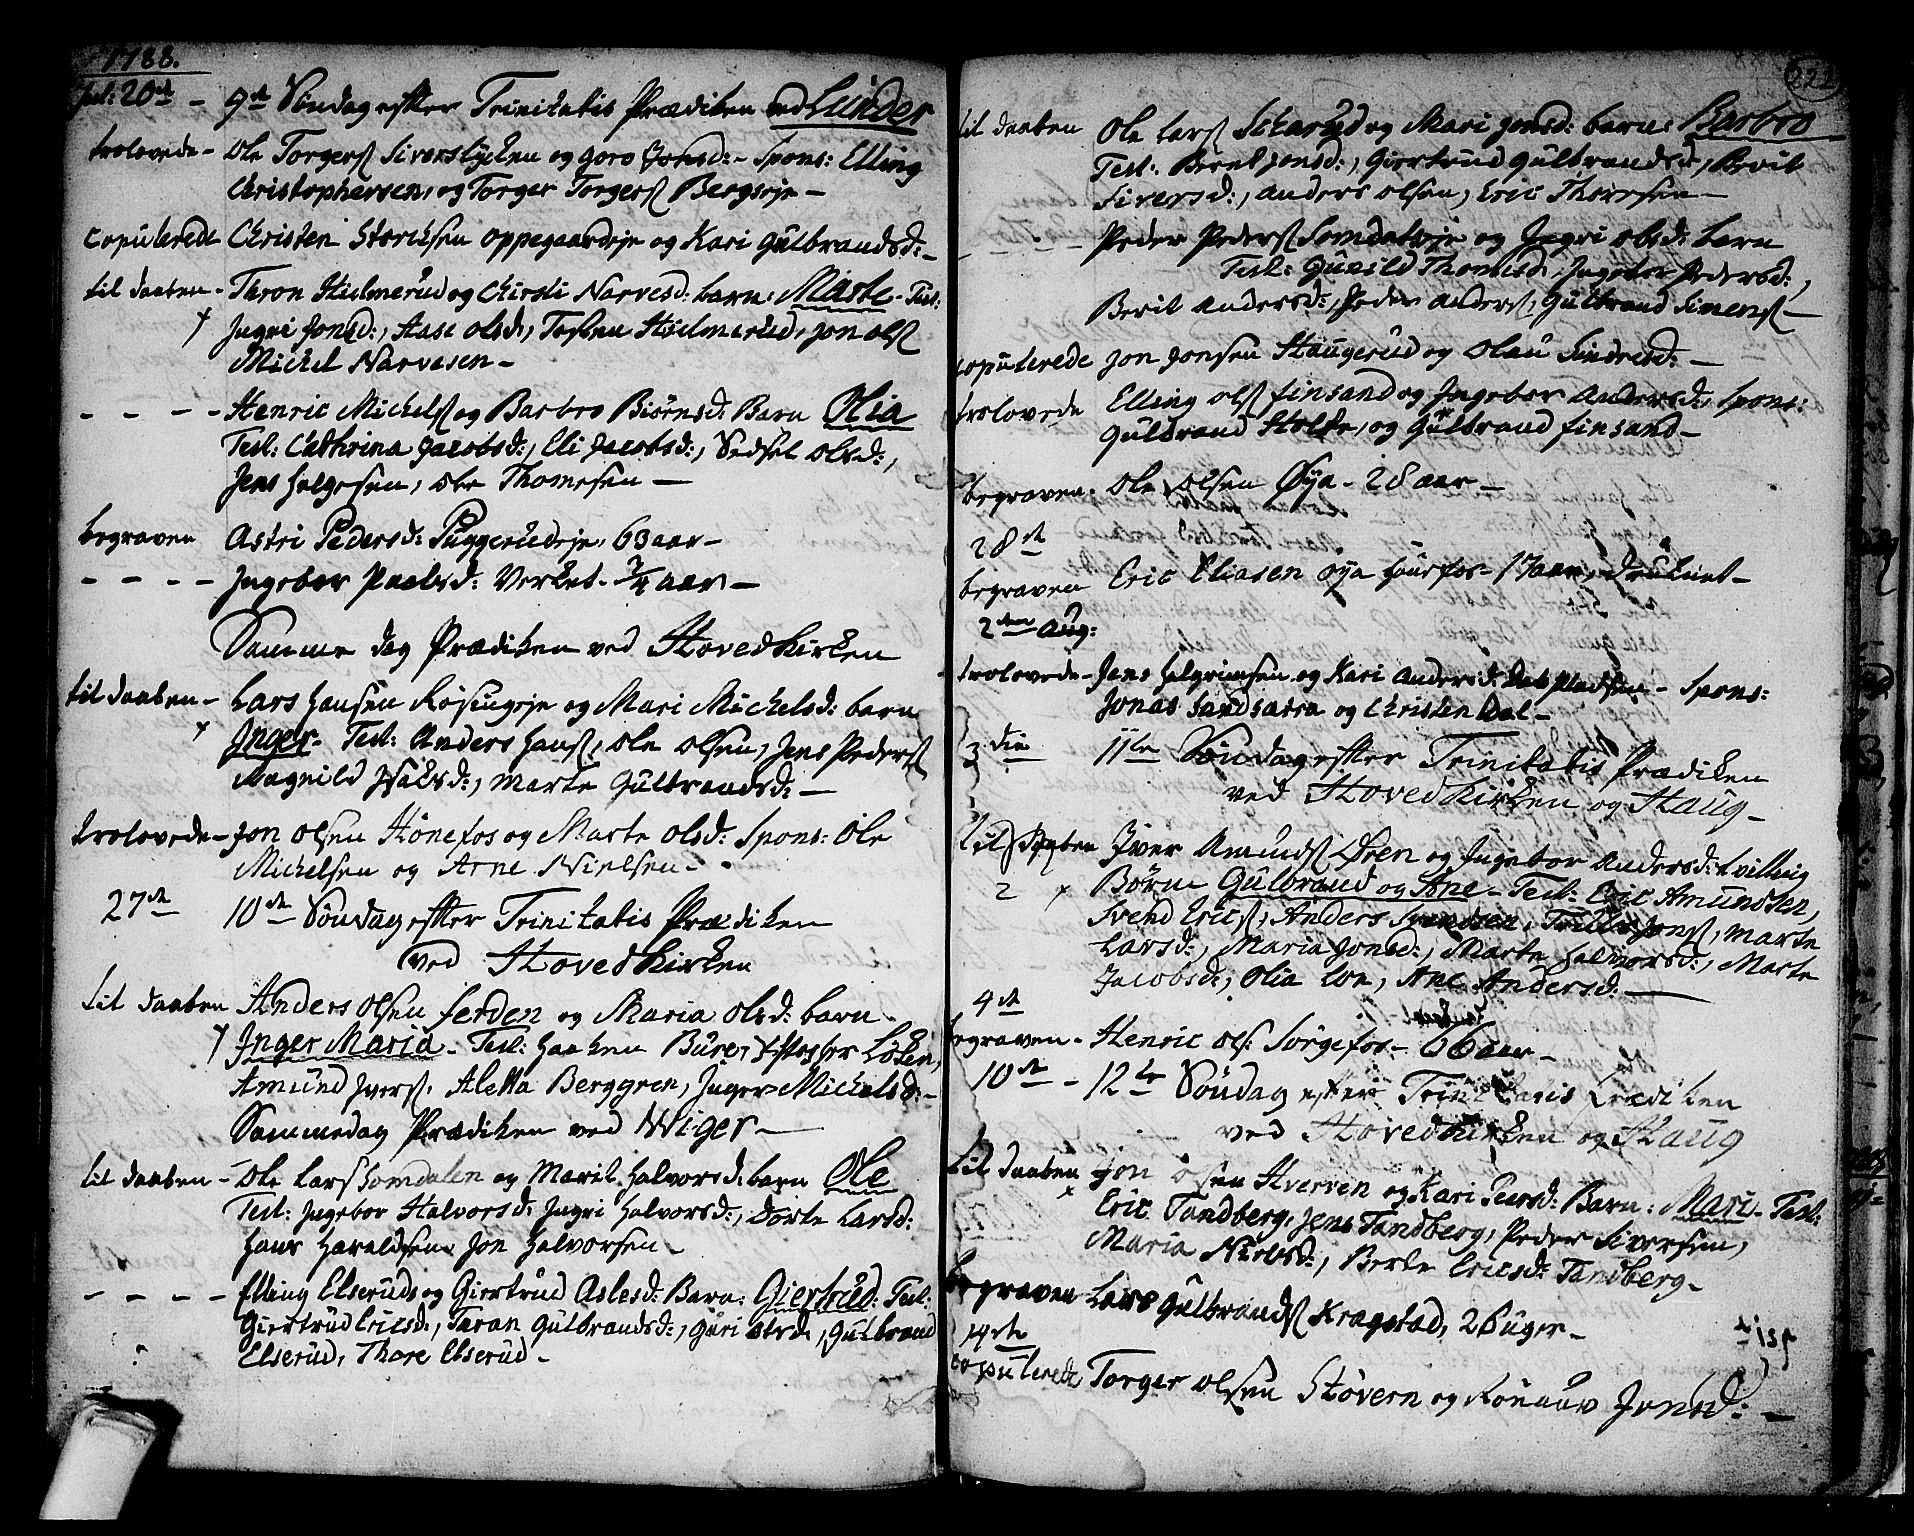 1788.
Jul: 20de - 9de Søndag efter Trinitatis Prædiken ved Lunder
trolovede - Ole Torgers Siverstycken og Goro Jonsd: - Spons: Elling
Christophersen, og Torger Torgers Bergseje -
copulerede Christen Oppegaardseje og Kari Gulbrandsd: -
til daaben - Taron Hielmerud og Chirsti Narvesd: barn: Marte - Test:
Ingri Jonsd:, Aase Olsd:, Hielmerud, Jon Ols
Michel Narvesen -
- - - - Henric Michels og Barbro Biørnsd: Barn Olia
Test: Cathrina Jacobsd:, Eli Jacobsd:, Sedsel Olsd:,
Jens Helgesen, Ole Thomesen -
begraven Astri Pedersd: Puggerudeje, 63 aar -
- - - - Ingebor Paalsd: Verket - 3/4 aar -
Samme dag Prædiken ved Hovedkirken
til daaben - Lars Hansen Røsingeje og Mari Michelsd: barn
Inger - Test: Anders Hans, Ole Olsen, Jens Peders
Magnild Isaksd:, Marte Gulbrandsd: -
trolovede - Jon Olsen Hønefos og Marte Olsd: Spons: Ole
Michelsen og Arne Nielsen -
27de 10de Søndag efter Trinitatis Prædiken
ved Hovedkirken
til daaben Anders Olsen ferden og Maria Olsd: barn
Inger Maria - Test: Haaken Bure, Løken,
Amund Ivers, Aletta Berggren, Inger Michelsd: -
Sammedag Prædiken ved Wiger -
til daaben - Ole Lars Somdalen og Marit Halvorsd: barn Ole
Test: Ingebor Halvorsd: Ingri Halvorsd:, Dorte Larsd:
Hans Haraldsen Jon Halvorsen -
- - - - Elling Elserud og Giertrud Aslesd: Barn: Giertrud: Test:
Giertrud Ericsd:, Taran Gulbrandsd:, Guri Olsd:, Gulbrand
Elserud, Thore Elserud -
222
til daaben Ole Lars Skarud og Mari Jonsd: barn: Barbro
Test: Berit Jonsd:, Giertrud Gulbrandsd, Berit
Siversd:, Anders Olsen, Eric Thoresen -
- Peder Peders Somdalseje og Ingri Olsd: barn
Test: Gunild Thomesd, Ingebor Pedersd:,
Berit Andersd:, Peder Anders, Gulbrand Simens -
copulerede Jon Jonsen Haugerud og Olau Sindresd: -
trolovede Elling Ols finsand og Ingebor Andersd:, Spons:
Gulbrand Holte, og Gulbrand finsand -
begraven. Ole Olsen Øya - 28 aar -
28de
begraven Eric Eliasen Øya - 17 aar, druknet -
2den Aug:
trolovede - Jens Helgrimsen og Kari Andersd: - Spons:
Jonas Sandsætra og Christen Dal -
3die 11te Søndag efter Trinitatis Prædiken
ved Hovedkirken og Haug -
til Daaben Iver Amunds Øren og Ingebor Andersd: tvilling
2 x Børn Gulbrand og Ane - Test: Eric Amundsen,
Svend Erics, Anders Svendsen, Jons, Marte
Larsd:, Maria Jonsd:, Marte Halvorsd:, Marte
Jacobsd:, Olia Loe, Ane Andersd: -
4de
begraven - Henric Ols: Sørgefos - 66 aar -
10de - 12te Søndag efter Trinitatis Prædiken
ved Hovedkirken og Haug
til daaben Jon Olsen Hverven og Kari Pedersd: Barn: Mari - Test:
Eric Tandberg, Jens Tandberg, Peder Siversen,
Maria Nielsd:, Berte Ericsd: Tandberg -
begraven Lars Gulbrands Kragstad, 26 uger -
14de
copulerede Torger Olsen Støvern og Rønnau Jonsd: -